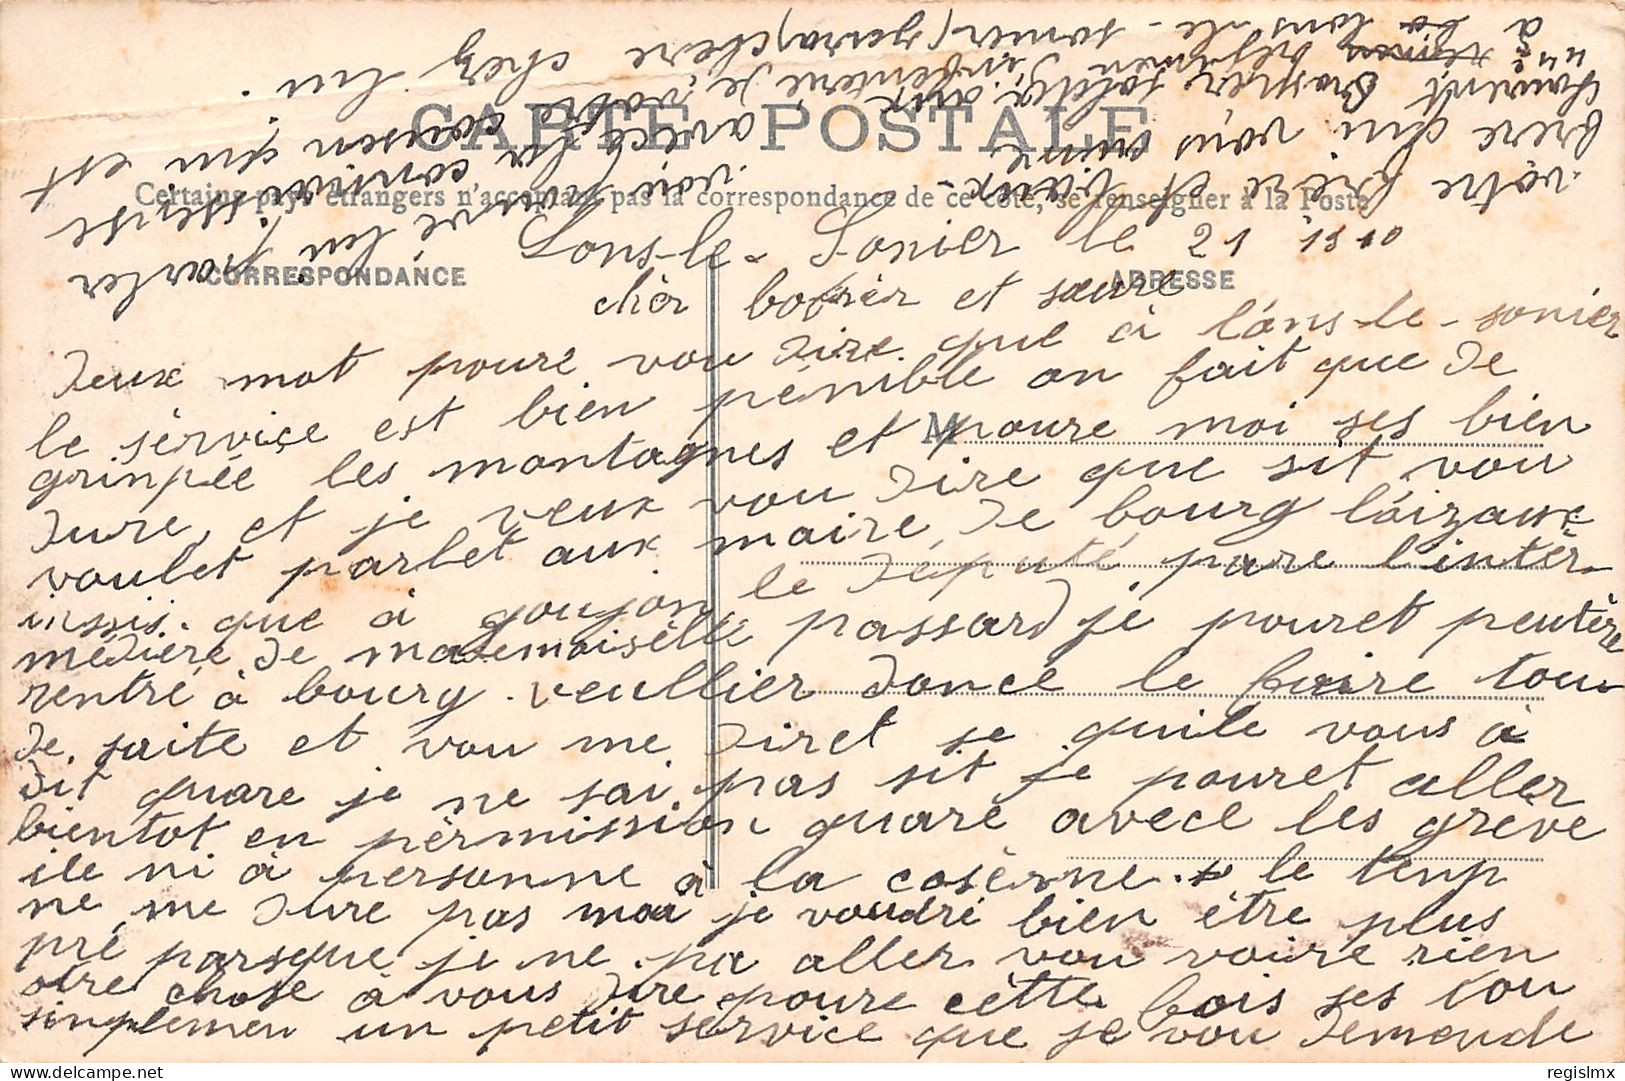 CARTE POSTALE
Certains pays étrangers n'acceptant pas la correspondance de ce côté, se renseigner à la Poste
CORRESPONDANCE
ADRESSE
M
Lons-le-Sonier le 21 1910
chèr bofrèr et sœure
Deux mot poure vou dire que à l'ons-le-sonier
le sèrviçe est bien pénible on fait que de
grinpée les montagnes et poure moi ses bien
dure, et je veux vou dire que sit vou
voulet parlet aux maire de bourg
insis. que à goujon le député pare l'intèr-
médière de mademoisèlle passard je pouret peutère
rentré à bourg. veullier donce le faire tou
de suite et vou me diret se quile vous à
dit quare je ne sai pas sit je pouret aller
bientot en pèrmission quare avece les grève
ile ni à personne à la casèrne. le temp
ne me dure pas moi je voudré bien être plus
pré parsque je ne pa aller vou voire rien
otre chose à vous dire poure cètte fois ses tou
sinplemen un petit service que je vou demende
votre frère et
frère qui vous aime
à Lons-le-sonier (jura) chère
parler
avece la
qui est
chez lui.
regislmx